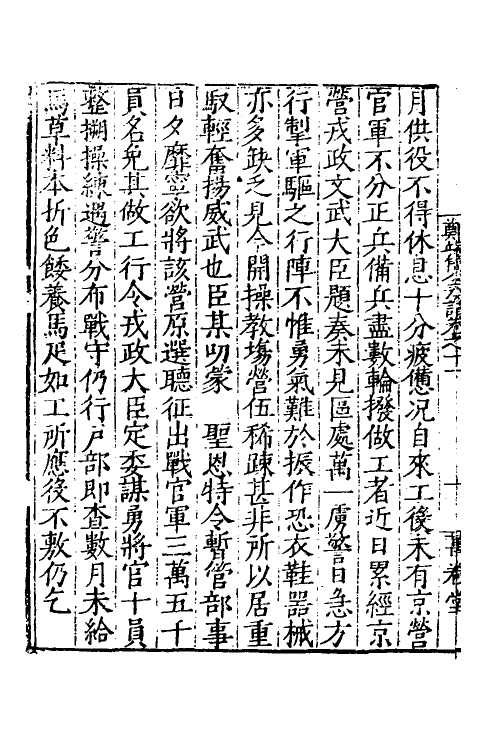 月供役不得休息十分疲憊况自來工後未有京營
官軍不分正兵備兵盡數輪撥做工者近日累經京
營戎政文武大臣題奏未見區處萬一虜警日急方
行掣軍驅之行陣不惟勇氣難於振作恐衣鞋器械
亦多缺乏見今開操教塲營伍稀疎甚非所以居重
馭輕奮揚威武也臣某叨蒙　聖恩特令暫管部事
日夕靡寧欲將該營原選聽征出戰官軍三萬五千
員名免其做工行令戎政大臣定委謀勇將官十員
整搠操練遇警分布戰守仍行戶部即查數月未給
馬草料本折色餧養馬疋如工所應後不敷仍乞
十
萬卷堂